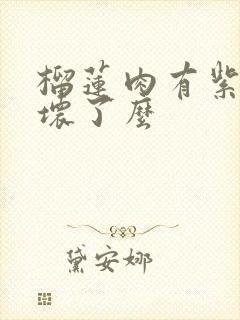 榴莲肉有紫
坏了么
黛安娜